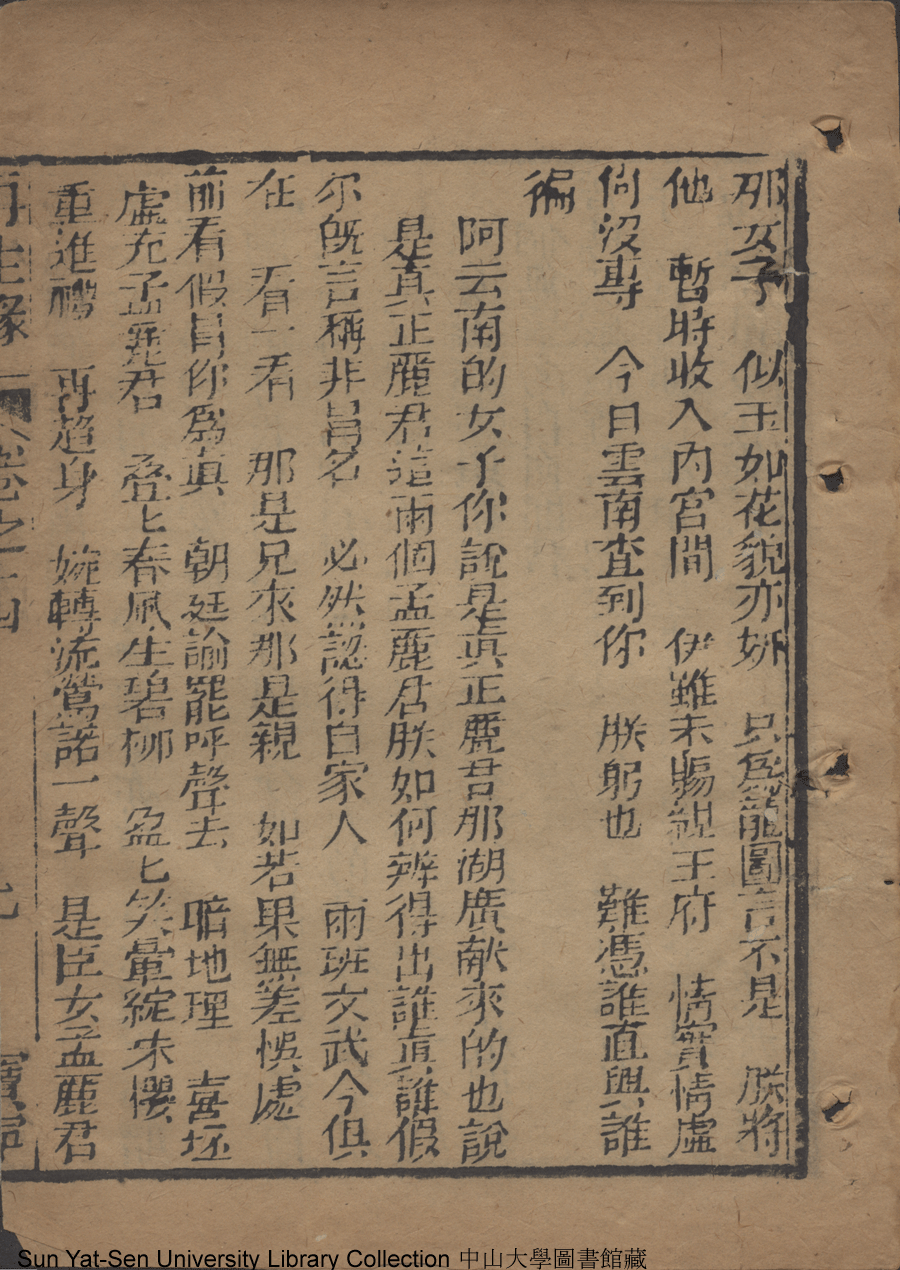 那女子　似玉如花貌亦妍　只爲龍圖言不是　朕將
他　暫時收入內宮間　伊雖未賜親王府　情實情虛
尙沒專　今日雲南查到你　朕躬也　難憑誰直與誰
徧
阿云南的女子你說是真正麗君那湖廣献來的也說
是真正麗君這兩個孟麗君朕如何辨得出誰真誰假
尔既言稱非冒名　必然認得自家人　兩班文武今俱
在　看一看　那是兄來那是親　如若果無差悞處
前看假冒你爲真　朝廷諭罷呼聲去　暗地理　喜坯
虛充孟麗君　叠匕春風生碧柳　盈匕笑暈綻朱櫻
重進禮　再趨身　婉轉流鶯諾一聲　是臣女孟麗君
再生緣　卷之十四　九　寶寧
Sun Yat-Sen University Library Collection 中山大學圖書館藏